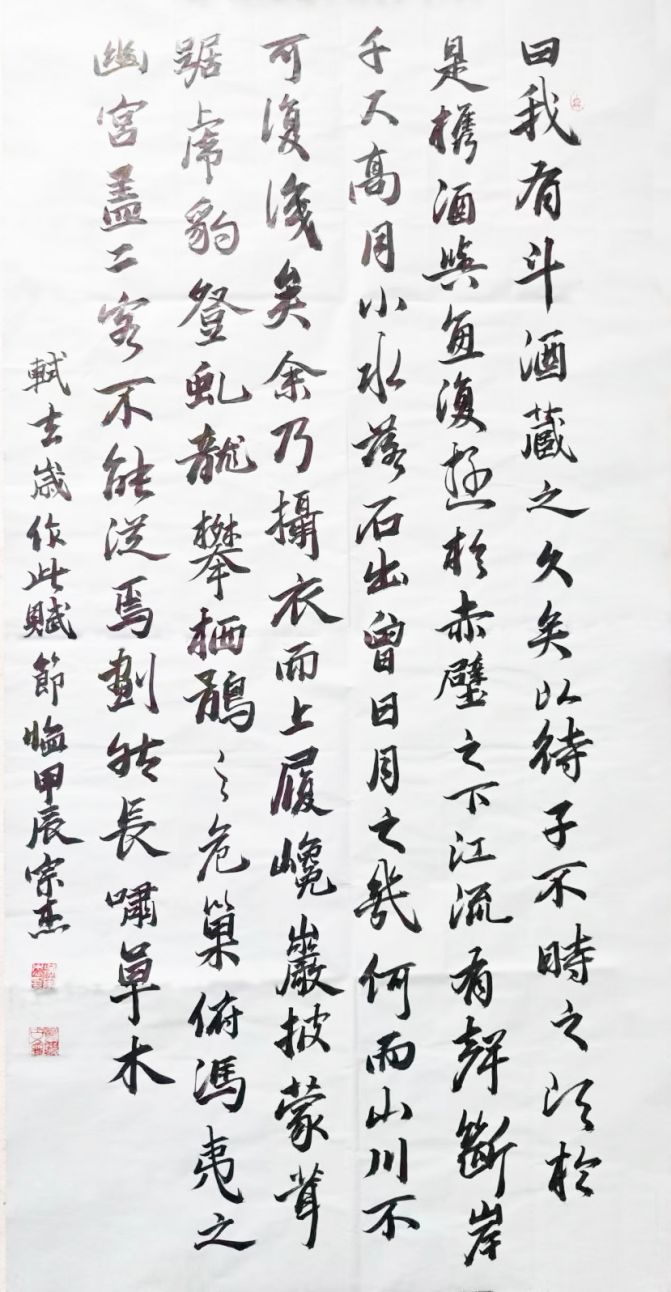 曰我有斗酒藏之久矣以待子不時之須於
是攜酒與魚復遊於赤壁之下江流有聲斷岸
千尺高月小水落石出曾日月之幾何而山川不
可復識矣余乃攝衣而上履巉巖披蒙茸
踞虎豹登虬龍攀栖鶻之危巢俯馮夷之
幽宮盖二客不能從焉劃然長嘯草木
軾去歲作此賦節臨甲辰宗杰